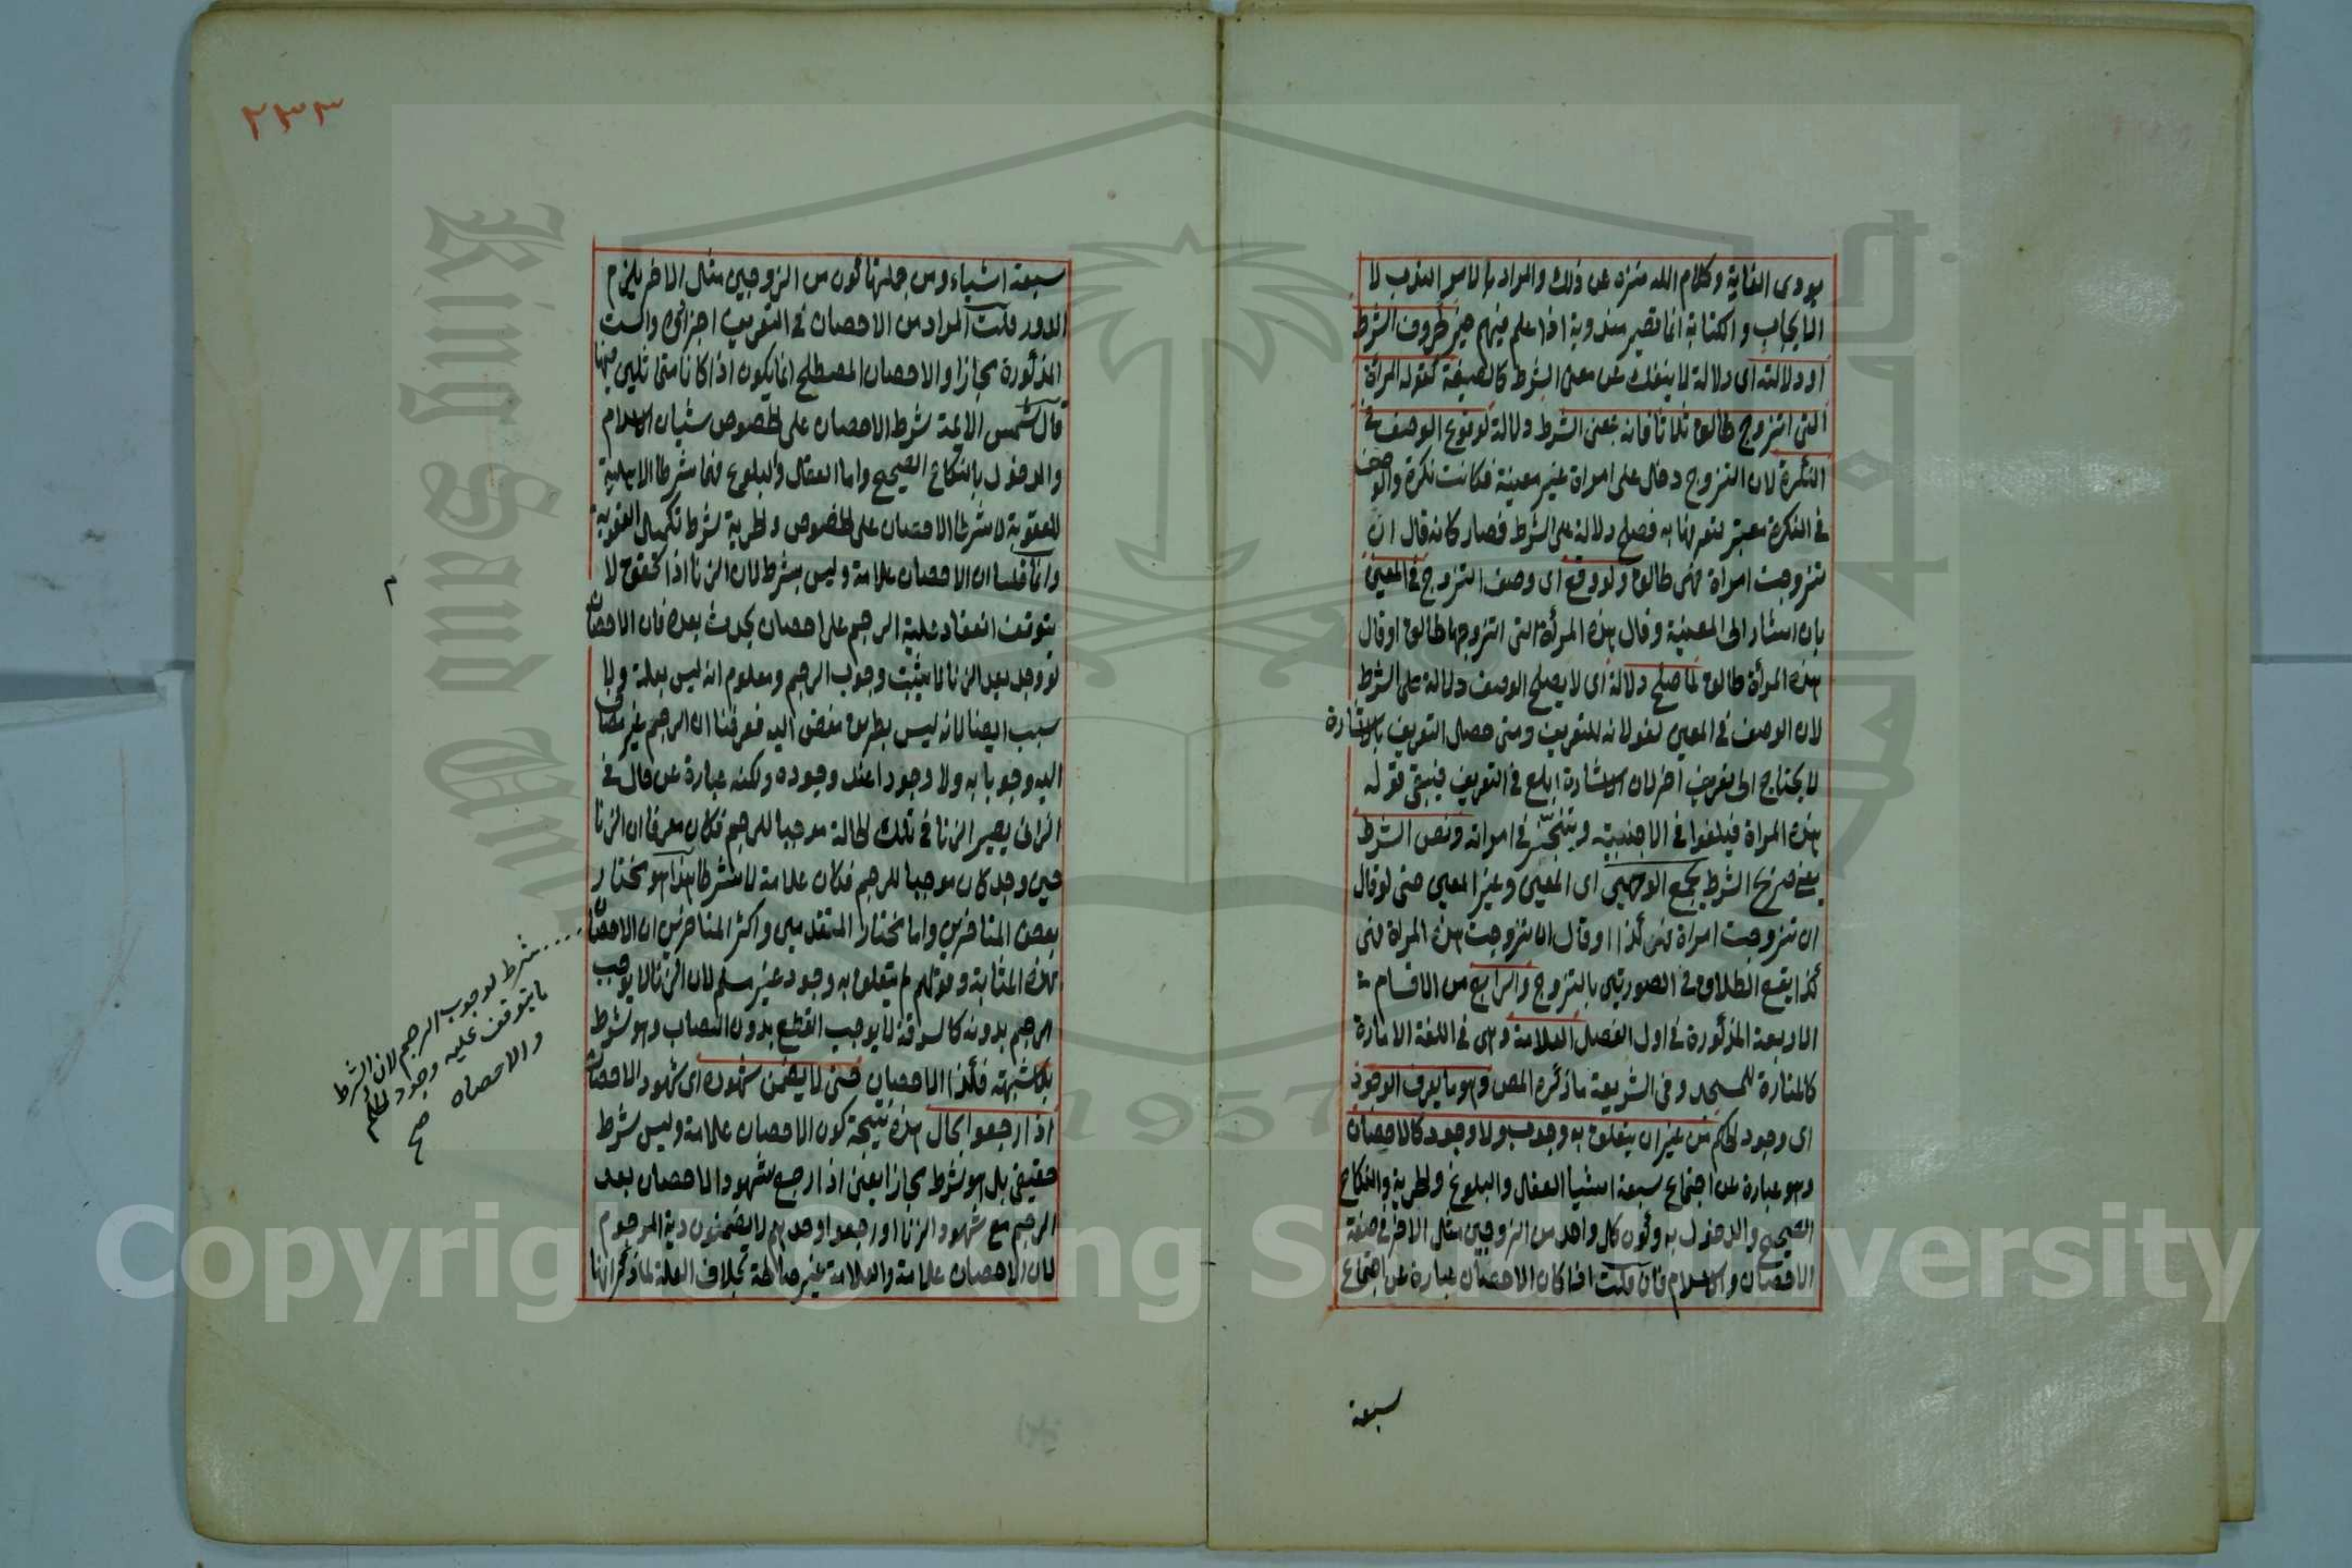 يودى الغاية وكلام الله منزه عن ذلك والمراد بالامر الندب لا
الايجاب والكتابة انما تصير مندوبة اذا علم فيهم خير ظروف الشرط
او دلالته اى دلالة لا ينفك عن معنى الشرط كالصيغة كقوله المرأة
التى اتزوج طالق ثلاثا فانه بمعنى الشرط دلالة لوقوع الوصف فى
النكرة لان التزوج دخل على امراة غير معينة فكانت نكرة والوصف
فى النكرة معتبر لتعرفها به فصلح دلالة على الشرط فصار كانه قال ان
تتزوجت امراة فهى طالق ولو وقع اى وصف التزوج فى المعين
بان اشار الى المعينة وقال هذه المرأة التى اتزوجها طالق او قال
هذه المرأة طالق لما صلح دلالة اى لا يصلح الوصف دلالة على الشرط
لان الوصف فى المعين لغو لانه للتعريف ومتى حصل التعريف بالاشارة
لا يحتاج الى تعريف اخر لان الاشارة ابلغ فى التعريف فيبقى قوله
هذه المراة فيلغوا فى الاجنبية ويتنجز فى امراته ونص الشرط
يعنى صريح الشرط يجمع الوجهين اى المعين وغير المعين حتى لو قال
ان تزوجت امراة فهى كذا او قال ان تزوجت هذه المراة فهى
كذا يقع الطلاق فى الصورتين بالتزوج والرابع من الاقسام
الاربعة المذكورة فى اول الفصل العلامة وهى فى اللغة الامارة
كالمنارة للمسجد وفى الشريعة ما ذكره المص وهو ما يعرف الوجود
اى وجود الحكم من غير ان يتعلق به وجوب ولا وجود كالاحصان
وهو عبارة عن اجتماع سبعة اشيا العقل والبلوغ والحرية والنكاح
الصحيح والدخول به وكون كل واحد من الزوجين مثل الاخر فى صفة
الاحصان والاسلام فان قلت اذا كان الاحصان عبارة عن اجتماع
سبعة
٢٣٣
سبعة اشياء ومن جملتها كون من الزوجين مثل الاخر يلزم
الدور قلت المراد من الاحصان فى التعريف اجزائه والست
المذكورة مجازا والاحصان المصطلح انما يكون اذا كانا متماثلين فيها
قال شمس الائمة شرط الاحصان على الخصوص شيئان الاسلام
والدخول بالنكاح الصحيح واما العقل والبلوغ فهما شرطا الاهلية
للعقوبة لا شرطا الاحصان على الخصوص والحرية شرط تكميل العقوبة
وانما قلنا ان الاحصان علامة وليس بشرط لان الزنا اذا تحقق لا
يتوقف انعقاد علية الرجم على احصان يحدث بعده فان الاحصان
لو وجد بعد الزنا لا يثبت وجوب الرجم ومعلوم انه ليس بعلة ولا
سبب ايضا لانه ليس بطريق مفض اليه فعرفنا ان الرجم غير مضاف
اليه وجوبا به ولا وجودا عند وجوده ولكنه عبارة عن حال فى
الزانى يصير الزنا فى تلك الحالة موجبا للرجم فكان معرفا ان الزنا
حين وجد كان موجبا للرجم فكان علامة لا شرطا هذا هو مختار
بعض المتاخرين واما مختار المتقدمين واكثر المتاخرين ان الاحصان
شرط لوجوب الرجم لان الشرط
ما يتوقف عليه وجود الحكم
والاحصان صح
بهذه المثابة وقولهم لم يتعلق به وجود غير مسلم لان الزنا لا يوجب
الرجم بدونه كالسرقة لا يوجب القطع بدون النصاب وهو شرط
فكذا الاحصان حتى لا يضمن شهوده اى شهود الاحصان
اذا رجعوا بحال هذه نتيجة كون الاحصان علامة وليس شرط
حقيقى بل هو شرط مجازا يعنى اذا رجع شهود الاحصان بعد
الرجم مع شهود الزنا او رجعوا وحدهم لا يضمنون دية المرجوم
لان الاحصان علامة والعلامة غير صالحة بخلاف العلة لما ذكر انها
King Saud University
1957
Copyright © King Saud University